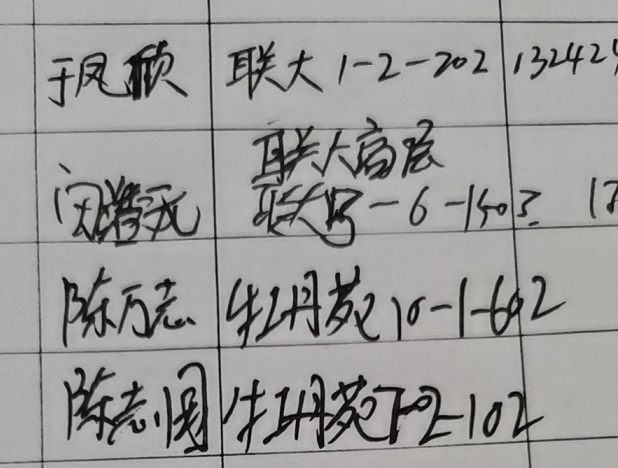 于凤欣 联大 1-2-202 132424
联大高层
闵 -6-1503 1
陈万志 牡丹苑 10-1-602
陈志国 牡丹苑 7-2-102